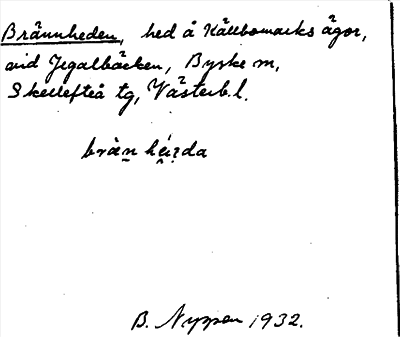 Brännheden, hed å Källbomarks ägor,
vid Jegalbäcken, Byske sn,
Skellefteå tg, Västerb. l.
B. Nyman 1932.